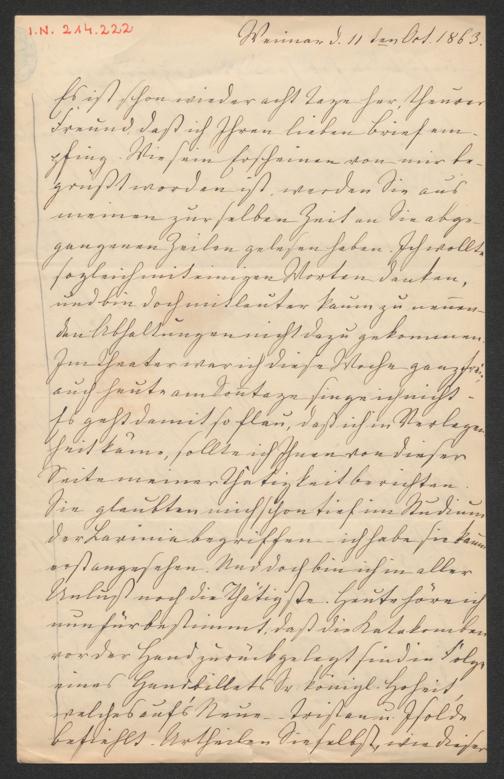 I.N. 214.222
Weimar d. 11ten Oct. 1863.
Es ist schon wieder acht Tage her, theurer
Freund, daß ich Ihren lieben Brief em-
pfing. Wie sein Erscheinen von mir be-
grüßt worden ist, werden Sie aus
meinen zur selben Zeit an Sie abge-
gangenen Zeilen gelesen haben. Ich wollte
sogleich mit einigen Worten danken,
und bin doch mit lauter kaum zu nennen-
den Abhaltungen nicht dazu gekommen.
Im Theater war ich diese Woche ganz frei,
auch heute am Sontage singe ich nicht –
Es geht damit so flau, daß ich in Verlegen
heit käme, sollte ich Ihnen von dieser
Seite meiner Thätigkeit berichten.
Sie glaubten mich schon tief im Studium
der Lavinia begriffen – ich habe sie kaum
erst angesehen. Und doch bin ich in aller
Unlust noch die Thätigste. Heute höre ich
nun für bestimmt, daß die Katakomben
vor der Hand zurückgelegt sind in Folge
eines Handbillets Sr. königl. Hoheit
welches aufs Neue – Tristan u. Isolde
befiehlt. Urtheilen Sie selbst, wie dieser